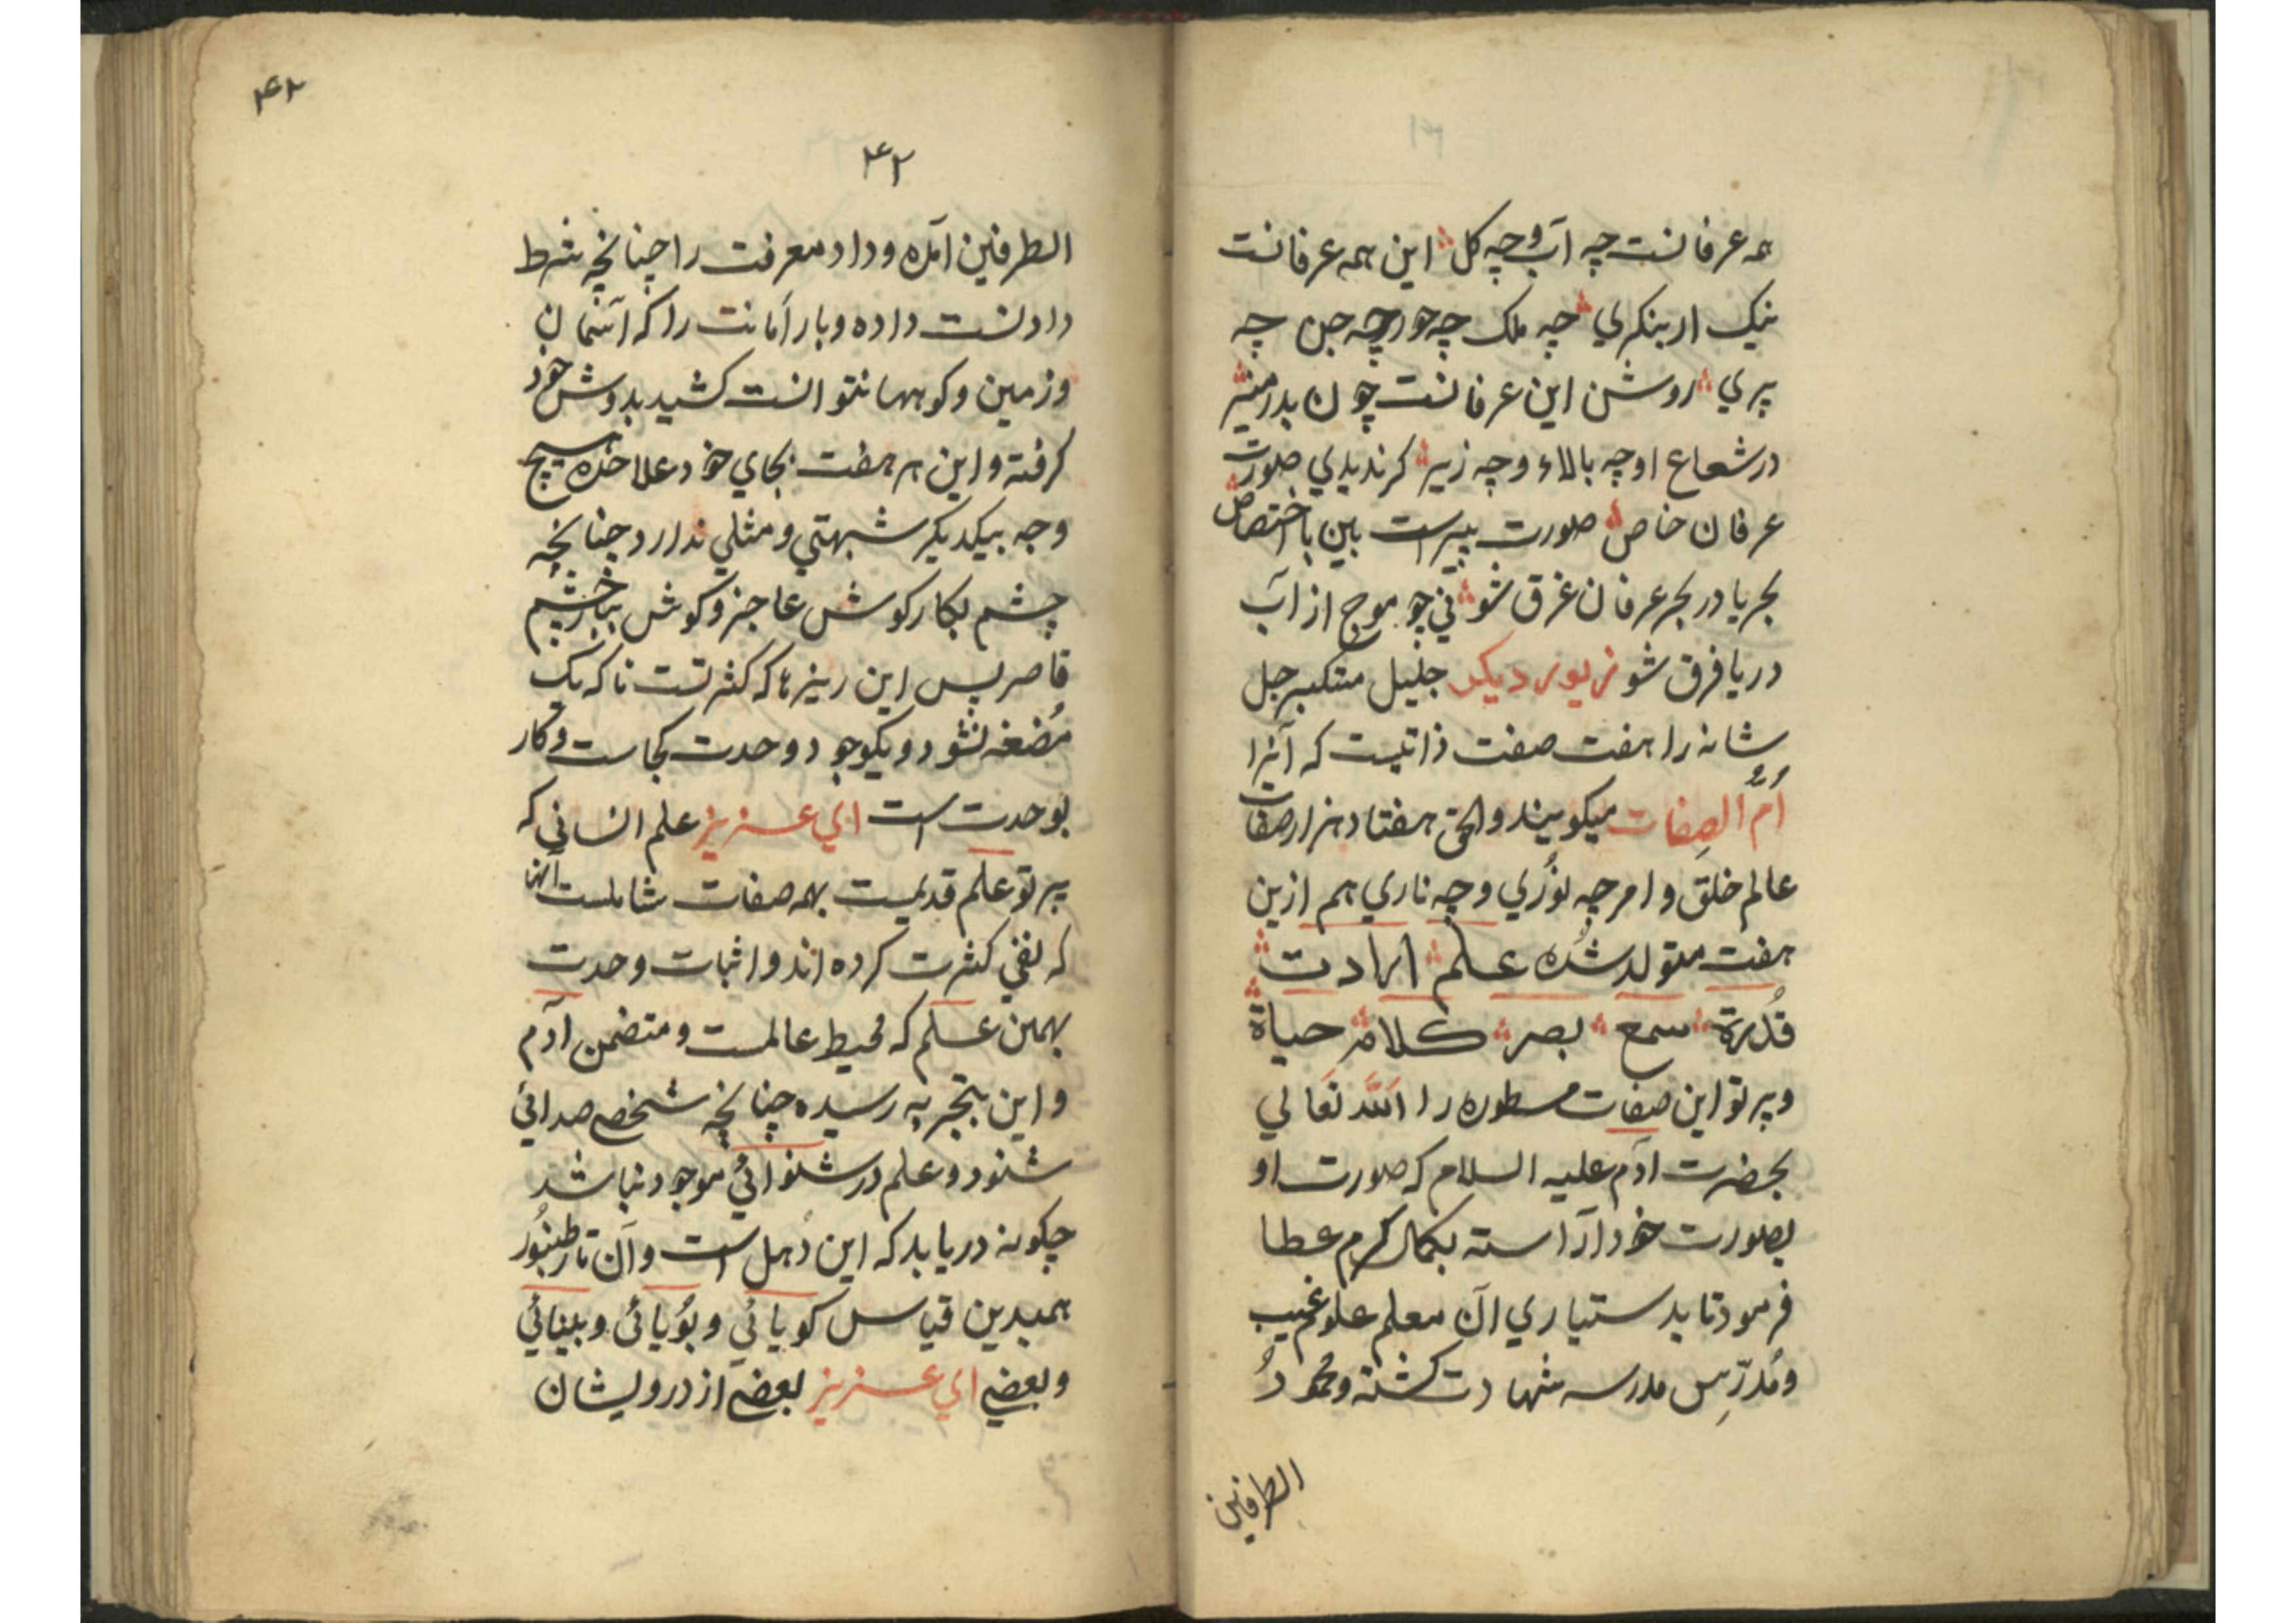 همه عرفانست چه آب و چه کل این همه عرفانست
نیک ار بنکري چه ملک چه حور چه جن چه
پري روشن این عرفانست چون بدر منیر
در شعاع او چه بالاء و چه زیر کر ندیدي صورت
عرفان خاص صورت پیر است بین با اختصاص
بحر یا در بحر عرفان غرق شو ني چو موج از آب
دریا فرق شو زیور دیکر جلیل متکبر جل
شانه را هفت صفت ذاتیست که آنرا
اُمُّ الصِفات میکویند والحق هفتاد هزار صفات
عالم خلق و امر چه نُوري و چه ناري هم ازین
هفت متولد شُده علم ارادت
قُدرة سمع بصر کلام حیاة
و پرتو این صفات مسطوره را الله تعالي
بحضرت آدم علیه السلام که صورت او
بصورت خود آراسته بکمال کرم عطا
فرمود تا بدستیاري آن معلم علوم غیب
و مُدرّسِ مدرسه شهادت کشته و محمودُ
الطرفین
۴۲
۴۲
الطرفین آمده و داد معرفت را چنانچه شرط
دادنست داده و بار اَمانت را که آسمان
و زمین و کوهها نتوانست کشید بدوش خود
کرفته و این هر هفت بجاي خود علاحده هیچ
وجه بیکدیکر شبهتي و مثلي ندارد چنانچه
چشم بکار کوش عاجز و کوش بباخر چشم
قاصر پس این ریزها که کثرتست تا که یک
مُضغه نشود و یکوجود وحدت کجاست و کار
بوحدت است اي عزیز علم انساني که
پرتو علم قدیمست بهمه صفات شاملست آنها
که نفي کثرت کرده اند و اثبات وحدت
بهمین علم که محیط عالمست و متضمن آدم
و این بتجربه رسیده چنانچه شخص صدائي
شنود و علم در شنوائي موجود نباشد
چکونه دریابد که این دُهل است و آن تار طنبُور
همبدین قیاس کویائي و بُویائی و بینائي
و بعضي اي عزیز بعضے از درویشان